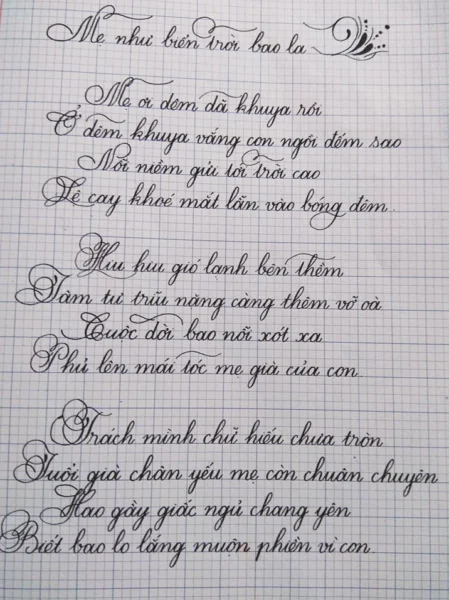 Mẹ như biển trời bao la
Mẹ ơi đêm đã khuya rồi
Ở đêm khuya vắng con ngồi đếm sao
Nỗi niềm gửi tới trời cao
Lệ cay khoé mắt lẫn vào bóng đêm.
Hiu hiu gió lạnh bên thềm
Tâm tư trĩu nặng càng thêm vỡ oà
Cuộc đời bao nỗi xót xa
Phủ lên mái tóc mẹ già của con
Trách mình chữ hiếu chưa tròn
Tuổi già chân yếu mẹ còn chuân chuyên
Hao gầy giấc ngủ chang yên
Biết bao lo lắng muộn phiền vì con.